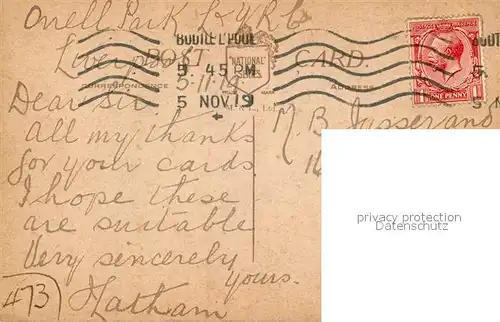 Onell Park L & Y R C
Liverpool
BOOTLE L'POOL
9.45 PM
5 NOV. 19
POST CARD.
"NATIONAL"
SERIES
CORRESPONDENCE
ADDRESS
5-11-19
M. & L., Ltd.
ONE PENNY
Dear Sir
All my thanks
for your cards
I hope these
are suitable
Very sincerely
yours.
Latham
473
M. B. Jusserand
14
privacy protection
Datenschutz